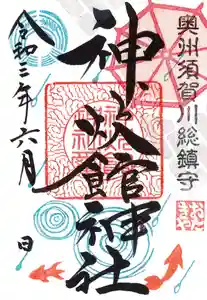 奥州須賀川総鎮守
神炊館神社
令和二年六月
日